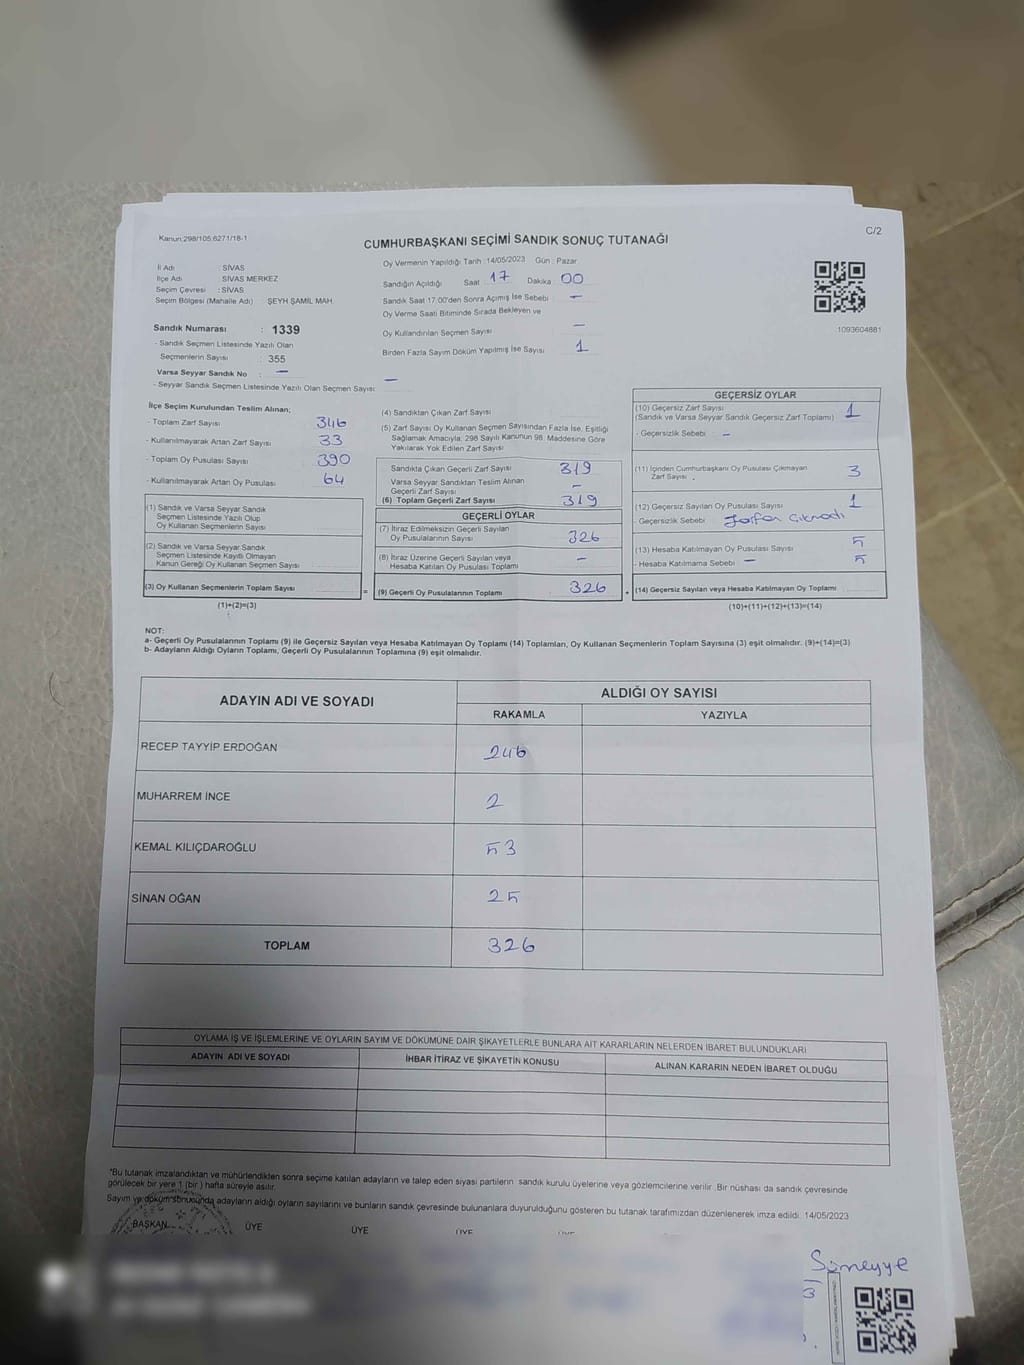 Kanun:298/105;6271/18-1
C/2
CUMHURBAŞKANI SEÇİMİ SANDIK SONUÇ TUTANAĞI
İl Adı : SİVAS
İlçe Adı : SİVAS MERKEZ
Seçim Çevresi : SİVAS
Seçim Bölgesi (Mahalle Adı) ŞEYH ŞAMİL MAH.
Sandık Numarası : 1339
- Sandık Seçmen Listesinde Yazılı Olan
Seçmenlerin Sayısı : 355
Varsa Seyyar Sandık No : —
- Seyyar Sandık Seçmen Listesinde Yazılı Olan Seçmen Sayısı: —
Oy Vermenin Yapıldığı Tarih :14/05/2023 Gün : Pazar
Sandığın Açıldığı Saat 17 Dakika 00
Sandık Saat 17.00'den Sonra Açılmış İse Sebebi —
Oy Verme Saati Bitiminde Sırada Bekleyen ve
Oy Kullandırılan Seçmen Sayısı —
Birden Fazla Sayım Döküm Yapılmış İse Sayısı 1
1093604881
İlçe Seçim Kurulundan Teslim Alınan;
- Toplam Zarf Sayısı 346
- Kullanılmayarak Artan Zarf Sayısı 33
- Toplam Oy Pusulası Sayısı 390
- Kullanılmayarak Artan Oy Pusulası 64
(1) Sandık ve Varsa Seyyar Sandık
Seçmen Listesinde Yazılı Olup
Oy Kullanan Seçmenlerin Sayısı
(2) Sandık ve Varsa Seyyar Sandık
Seçmen Listesinde Kayıtlı Olmayan
Kanun Gereği Oy Kullanan Seçmen Sayısı
(3) Oy Kullanan Seçmenlerin Toplam Sayısı =
(1)+(2)=(3)
(4) Sandıktan Çıkan Zarf Sayısı
(5) Zarf Sayısı Oy Kullanan Seçmen Sayısından Fazla İse, Eşitliği
Sağlamak Amacıyla; 298 Sayılı Kanunun 98. Maddesine Göre
Yakılarak Yok Edilen Zarf Sayısı
Sandıkta Çıkan Geçerli Zarf Sayısı 319
Varsa Seyyar Sandıktan Teslim Alınan
Geçerli Zarf Sayısı —
(6) Toplam Geçerli Zarf Sayısı 319
GEÇERLİ OYLAR
(7) İtiraz Edilmeksizin Geçerli Sayılan
Oy Pusulalarının Sayısı 326
(8) İtiraz Üzerine Geçerli Sayılan veya
Hesaba Katılan Oy Pusulası Toplamı —
(9) Geçerli Oy Pusulalarının Toplamı 326 +
GEÇERSİZ OYLAR
(10) Geçersiz Zarf Sayısı
(Sandık ve Varsa Seyyar Sandık Geçersiz Zarf Toplamı) 1
- Geçersizlik Sebebi : —
(11) İçinden Cumhurbaşkanı Oy Pusulası Çıkmayan
Zarf Sayısı 3
(12) Geçersiz Sayılan Oy Pusulası Sayısı 1
- Geçersizlik Sebebi Zarftan Çıkmadı
(13) Hesaba Katılmayan Oy Pusulası Sayısı 5
- Hesaba Katılmama Sebebi — 5
(14) Geçersiz Sayılan veya Hesaba Katılmayan Oy Toplamı
(10)+(11)+(12)+(13)=(14)
NOT:
a- Geçerli Oy Pusulalarının Toplamı (9) ile Geçersiz Sayılan veya Hesaba Katılmayan Oy Toplamı (14) Toplamları, Oy Kullanan Seçmenlerin Toplam Sayısına (3) eşit olmalıdır. (9)+(14)=(3)
b- Adayların Aldığı Oyların Toplamı, Geçerli Oy Pusulalarının Toplamına (9) eşit olmalıdır.
ADAYIN ADI VE SOYADI ALDIĞI OY SAYISI
RAKAMLA YAZIYLA
RECEP TAYYİP ERDOĞAN 246
MUHARREM İNCE 2
KEMAL KILIÇDAROĞLU 53
SİNAN OĞAN 25
TOPLAM 326
OYLAMA İŞ VE İŞLEMLERİNE VE OYLARIN SAYIM VE DÖKÜMÜNE DAİR ŞİKAYETLERLE BUNLARA AİT KARARLARIN NELERDEN İBARET BULUNDUKLARI
ADAYIN ADI VE SOYADI İHBAR İTİRAZ VE ŞİKAYETİN KONUSU ALINAN KARARIN NEDEN İBARET OLDUĞU
*Bu tutanak imzalandıktan ve mühürlendikten sonra seçime katılan adayların ve talep eden siyasi partilerin sandık kurulu üyelerine veya gözlemcilerine verilir. Bir nüshası da sandık çevresinde
görülecek bir yere 1 (bir ) hafta süreyle asılır.
Sayım ve döküm sonucunda adayların aldığı oyların sayılarını ve bunların sandık çevresinde bulunanlara duyurulduğunu gösteren bu tutanak tarafımızdan düzenlenerek imza edildi. 14/05/2023
BAŞKAN ÜYE ÜYE ÜYE
Sümeyye
3